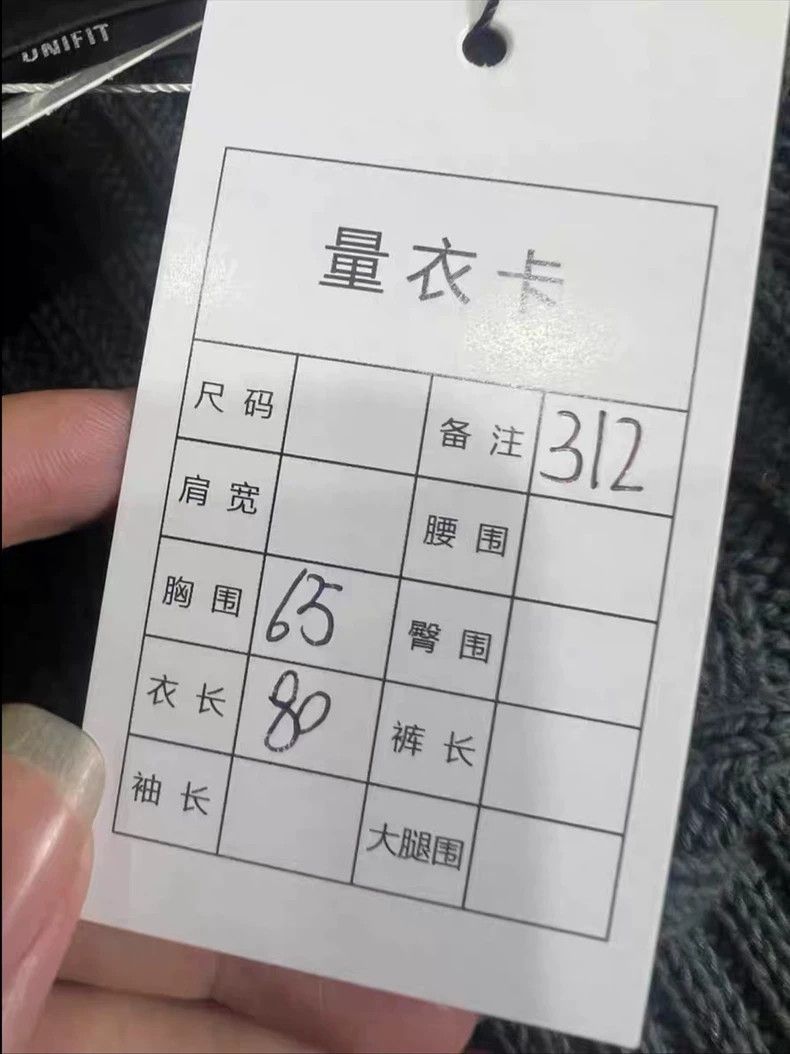 UNIFIT
量衣卡
尺码 备注 312
肩宽 腰围
胸围 65 臀围
衣长 80 裤长
袖长 大腿围